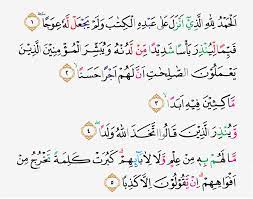 الْحَمْدُ لِلّٰهِ الَّذِيْٓ اَنْزَلَ عَلٰى عَبْدِهِ الْكِتٰبَ وَلَمْ يَجْعَلْ لَّهٗ عِوَجًا ۜ ١
قَيِّمًا لِّيُنْذِرَ بَأْسًا شَدِيْدًا مِّنْ لَّدُنْهُ وَيُبَشِّرَ الْمُؤْمِنِيْنَ الَّذِيْنَ
يَعْمَلُوْنَ الصّٰلِحٰتِ اَنَّ لَهُمْ اَجْرًا حَسَنًا ٢
مَّاكِثِيْنَ فِيْهِ اَبَدًا ٣
وَّيُنْذِرَ الَّذِيْنَ قَالُوا اتَّخَذَ اللّٰهُ وَلَدًا ٤
مَا لَهُمْ بِهٖ مِنْ عِلْمٍ وَّلَا لِاٰبَاۤىِٕهِمْ ۗ كَبُرَتْ كَلِمَةً تَخْرُجُ مِنْ
اَفْوَاهِهِمْ ۗ اِنْ يَّقُوْلُوْنَ اِلَّا كَذِبًا ٥